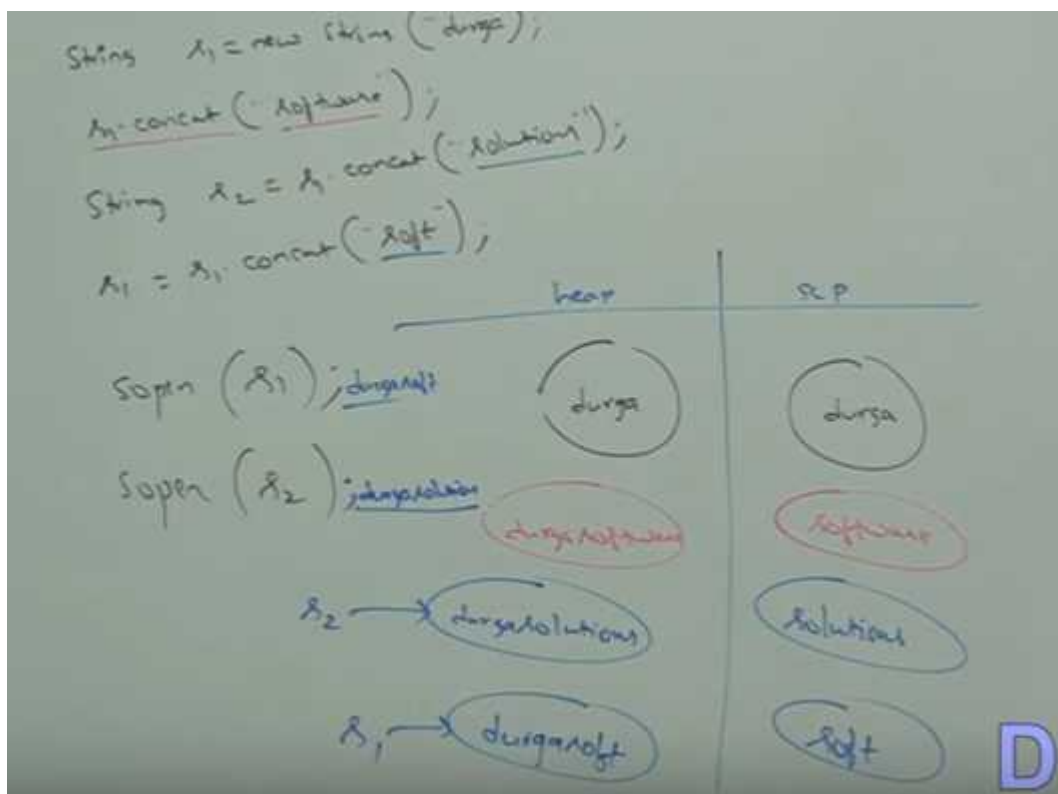 String s1 = new String("durga");
s1.concat("software");
String s2 = s1.concat("solutions");
s1 = s1.concat("soft");
heap scp
sopln (s1); durgasoft
durga durga
sopln (s2); durgasolution
durgasoftware software
s2 → durgasolutions solutions
s1 → durgasoft soft
D